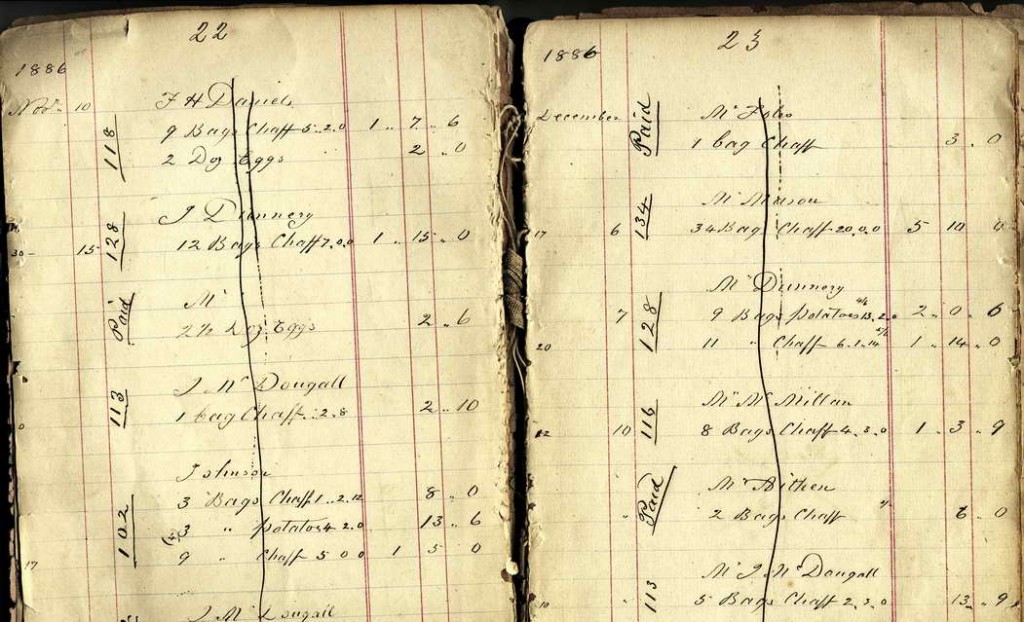 22
1886
Nov. 10
F H Daniels
118
9 Bags Chaff 5..2.0 1 .. 7 .. 6
2 Doz Eggs 2 .. 0
J Dunnery
128
15 12 Bags Chaff 7.0.0 1 .. 15 .. 0
30
Paid
Mr
2 ½ Doz Eggs 2 .. 6
J McDougall
113
1 bag Chaff ..2.8 2 .. 10
Johnson
102
3 Bags Chaff 1..2.12 8 .. 0
3 " potatos 4.2.0 13 .. 6
9 " Chaff 5 0 0 1 5 0
17
J McDougall
23
1886
December
Paid
Mr
1 bag Chaff 3 .. 0
Mr Mason
134
17 6 34 Bags Chaff 20.0.0 5 10 0
Mr Dunnery
128
7 9 Bags potatos 13.2.0 2 .. 0 .. 6
20 11 " Chaff 6.1.14 1 .. 14 .. 0
Mr McMillan
116
22 10 8 Bags Chaff 4.3.0 1 .. 3 .. 9
Mr Aitken
Paid
" 2 Bags Chaff 6 .. 0
Mr J McDougall
113
" 5 Bags Chaff 2.3.0 13 .. 9